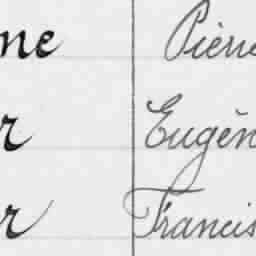 ne Pierre
r Eugèn
r Francis